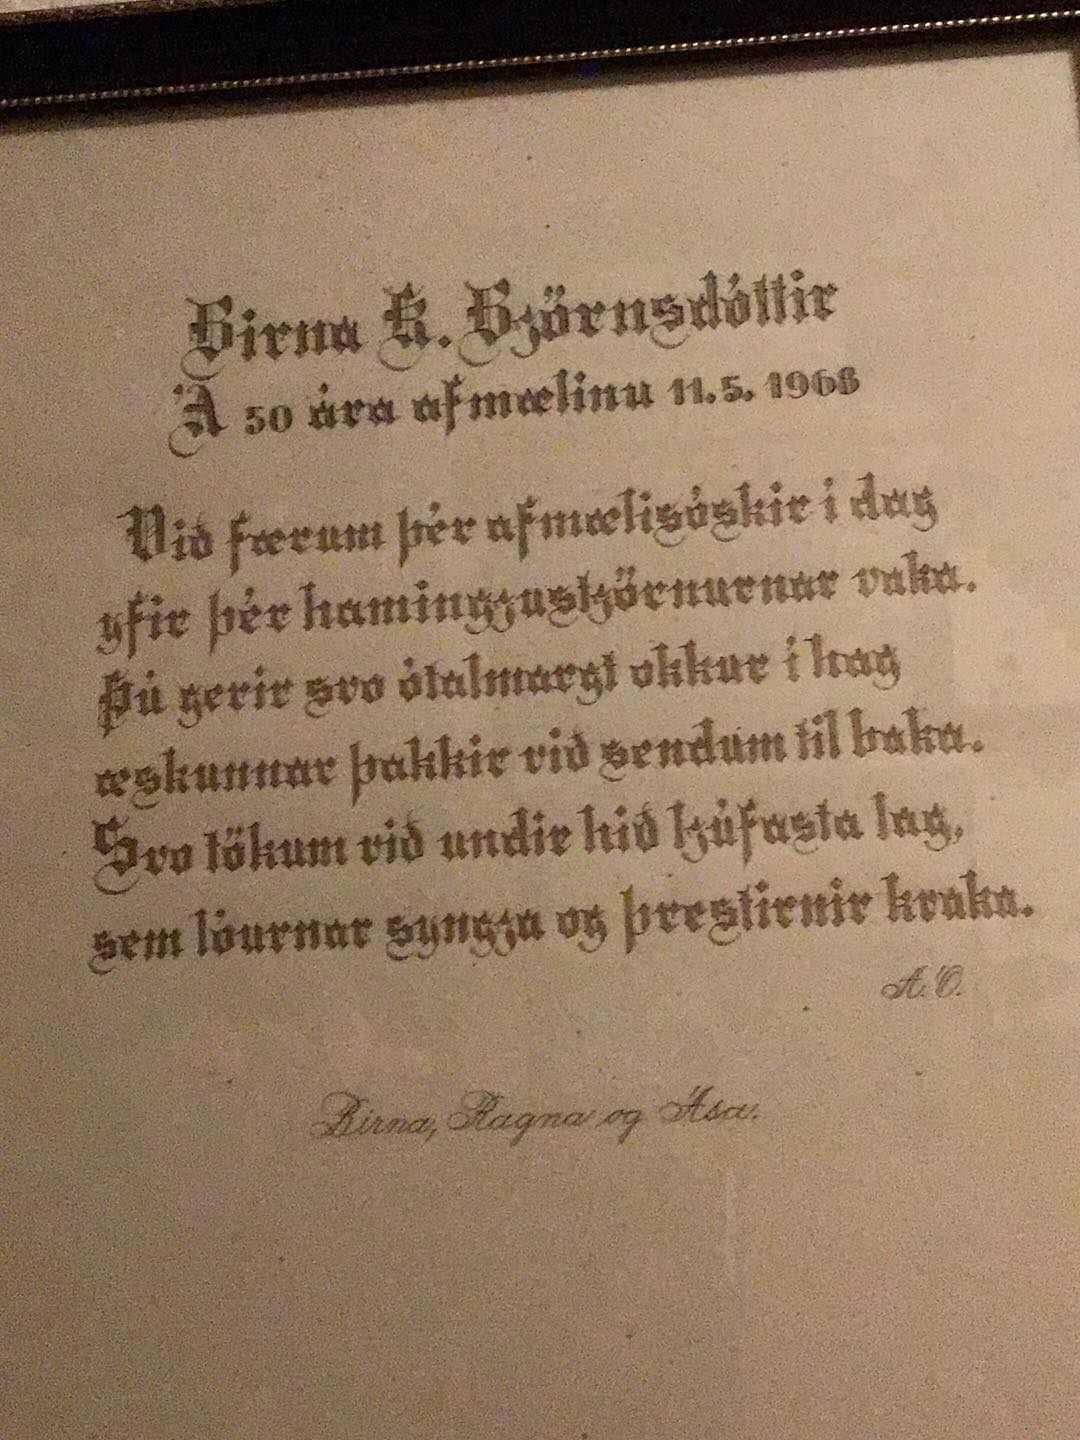 Birna K. Björnsdóttir
Á 50 ára afmælinu 11.5. 1968
Við færum þér afmælisóskir í dag
yfir þér hamingjustjörnurnar vaka.
Þú gerir svo ótalmargt okkur í hag
æskunnar þakkir við sendum til baka.
Svo tökum við undir hið ljúfasta lag,
sem lóurnar syngja og þrestirnir kvaka.
A.Ó.
Birna, Ragna og Ása.